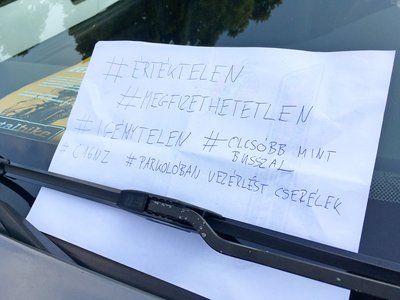 #ÉRTÉKTELEN
#MEGFIZETHETETLEN
#IGÉNYTELEN #OLCSÓBB MINT BUSSZAL
#CIGNZ #PARKOLÓBAN VEZÉRLÉST CSERÉLEK